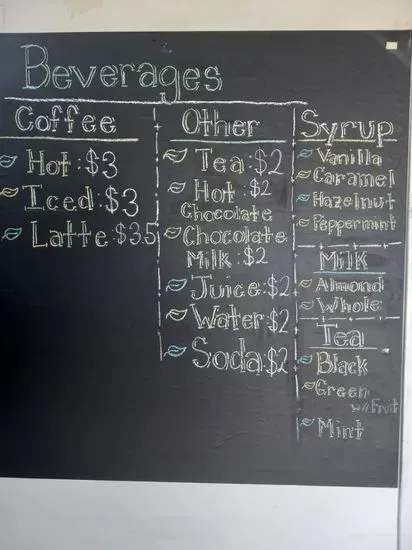 Beverages
Coffee
Hot: $3
Iced: $3
Latte: $3.5
Other
Tea: $2
Hot : $2
Chocolate
Chocolate
Milk : $2
Juice: $2
Water: $2
Soda: $2
Syrup
Vanilla
Caramel
Hazelnut
Peppermint
Milk
Almond
Whole
Tea
Black
Green
w/ Fruit
Mint